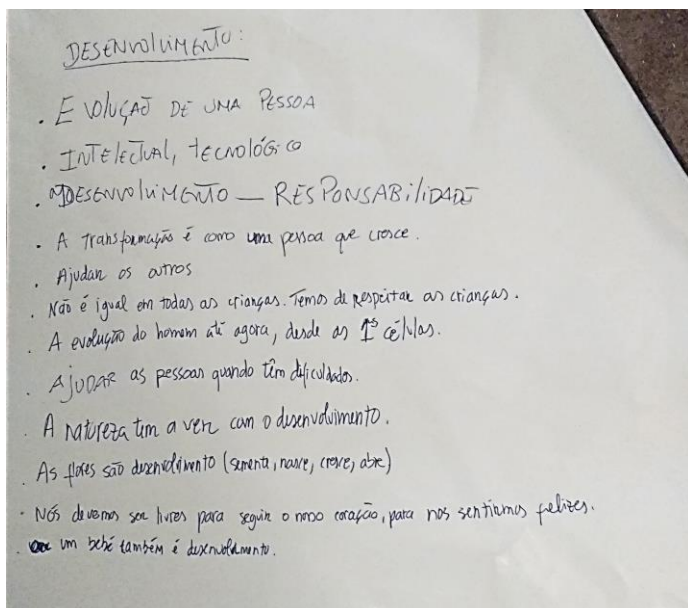 DESENVOLVIMENTO:
. EVOLUÇÃO DE UMA PESSOA
. INTELECTUAL, TECNOLÓGICO
. DESENVOLVIMENTO — RESPONSABILIDADE
. A transformação é como uma pessoa que cresce.
. Ajudar os outros
. Não é igual em todas as crianças. Temos de respeitar as crianças.
. A evolução do homem até agora, desde as 1ªs células.
. AJUDAR as pessoas quando têm dificuldades.
. A natureza tem a ver com o desenvolvimento.
. As flores são desenvolvimento (semente, nasce, cresce, abre)
. Nós devemos ser livres para seguir o nosso coração, para nos sentirmos felizes.
. um bebé também é desenvolvimento.